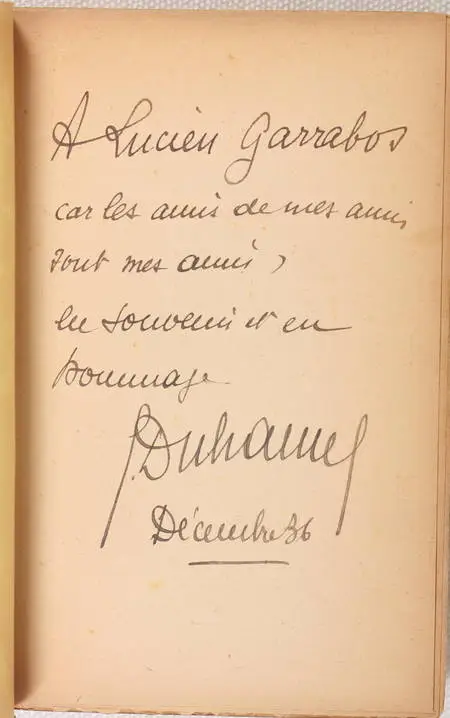 A Lucien Garrabos
car les amis de mes amis
sont mes amis,
en souvenir et en
hommage
G. Duhamel
Décembre 36